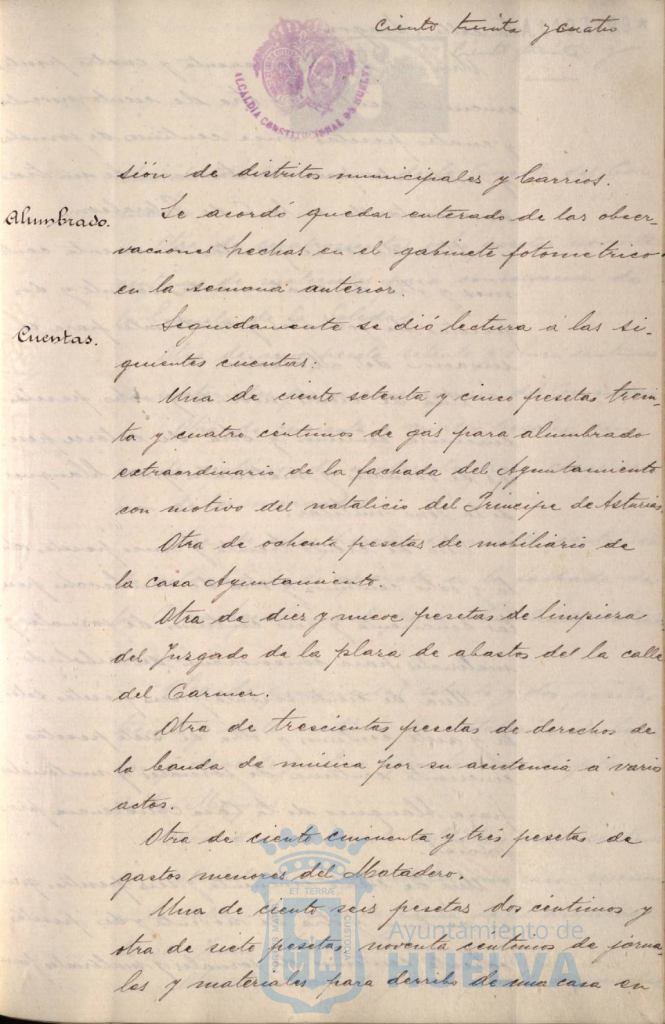 ciento treinta y cuatro
ALCALDIA CONSTITUCIONAL DE HUELVA
sión de distritos municipales y barrios.
Alumbrado.
Se acordó quedar enterado de las obser-
vaciones hechas en el gabinete fotometrico
en la semana anterior.
Cuentas.
Seguidamente se dió lectura á las si-
guientes cuentas:
Una de ciento setenta y cinco pesetas trein-
ta y cuatro céntimos de gas para alumbrado
extraordinario de la fachada del Ayuntamiento
con motivo del natalicio del Principe de Asturias.
Otra de ochenta pesetas de mobiliario de
la casa Ayuntamiento.
Otra de diez y nueve pesetas de limpieza
del Juzgado de la plaza de abastos del la calle
del Carmen.
Otra de trescientas pesetas de derechos de
la banda de música por su asistencia á varios
actos.
Otra de ciento cincuenta y trés pesetas de
gastos menores del Matadero.
Una de ciento seis pesetas dos céntimos y
otra de siete pesetas noventa centimos de jorna-
les y materiales para derribo de una casa en
ET TERRÆ
Ayuntamiento de
HUELVA